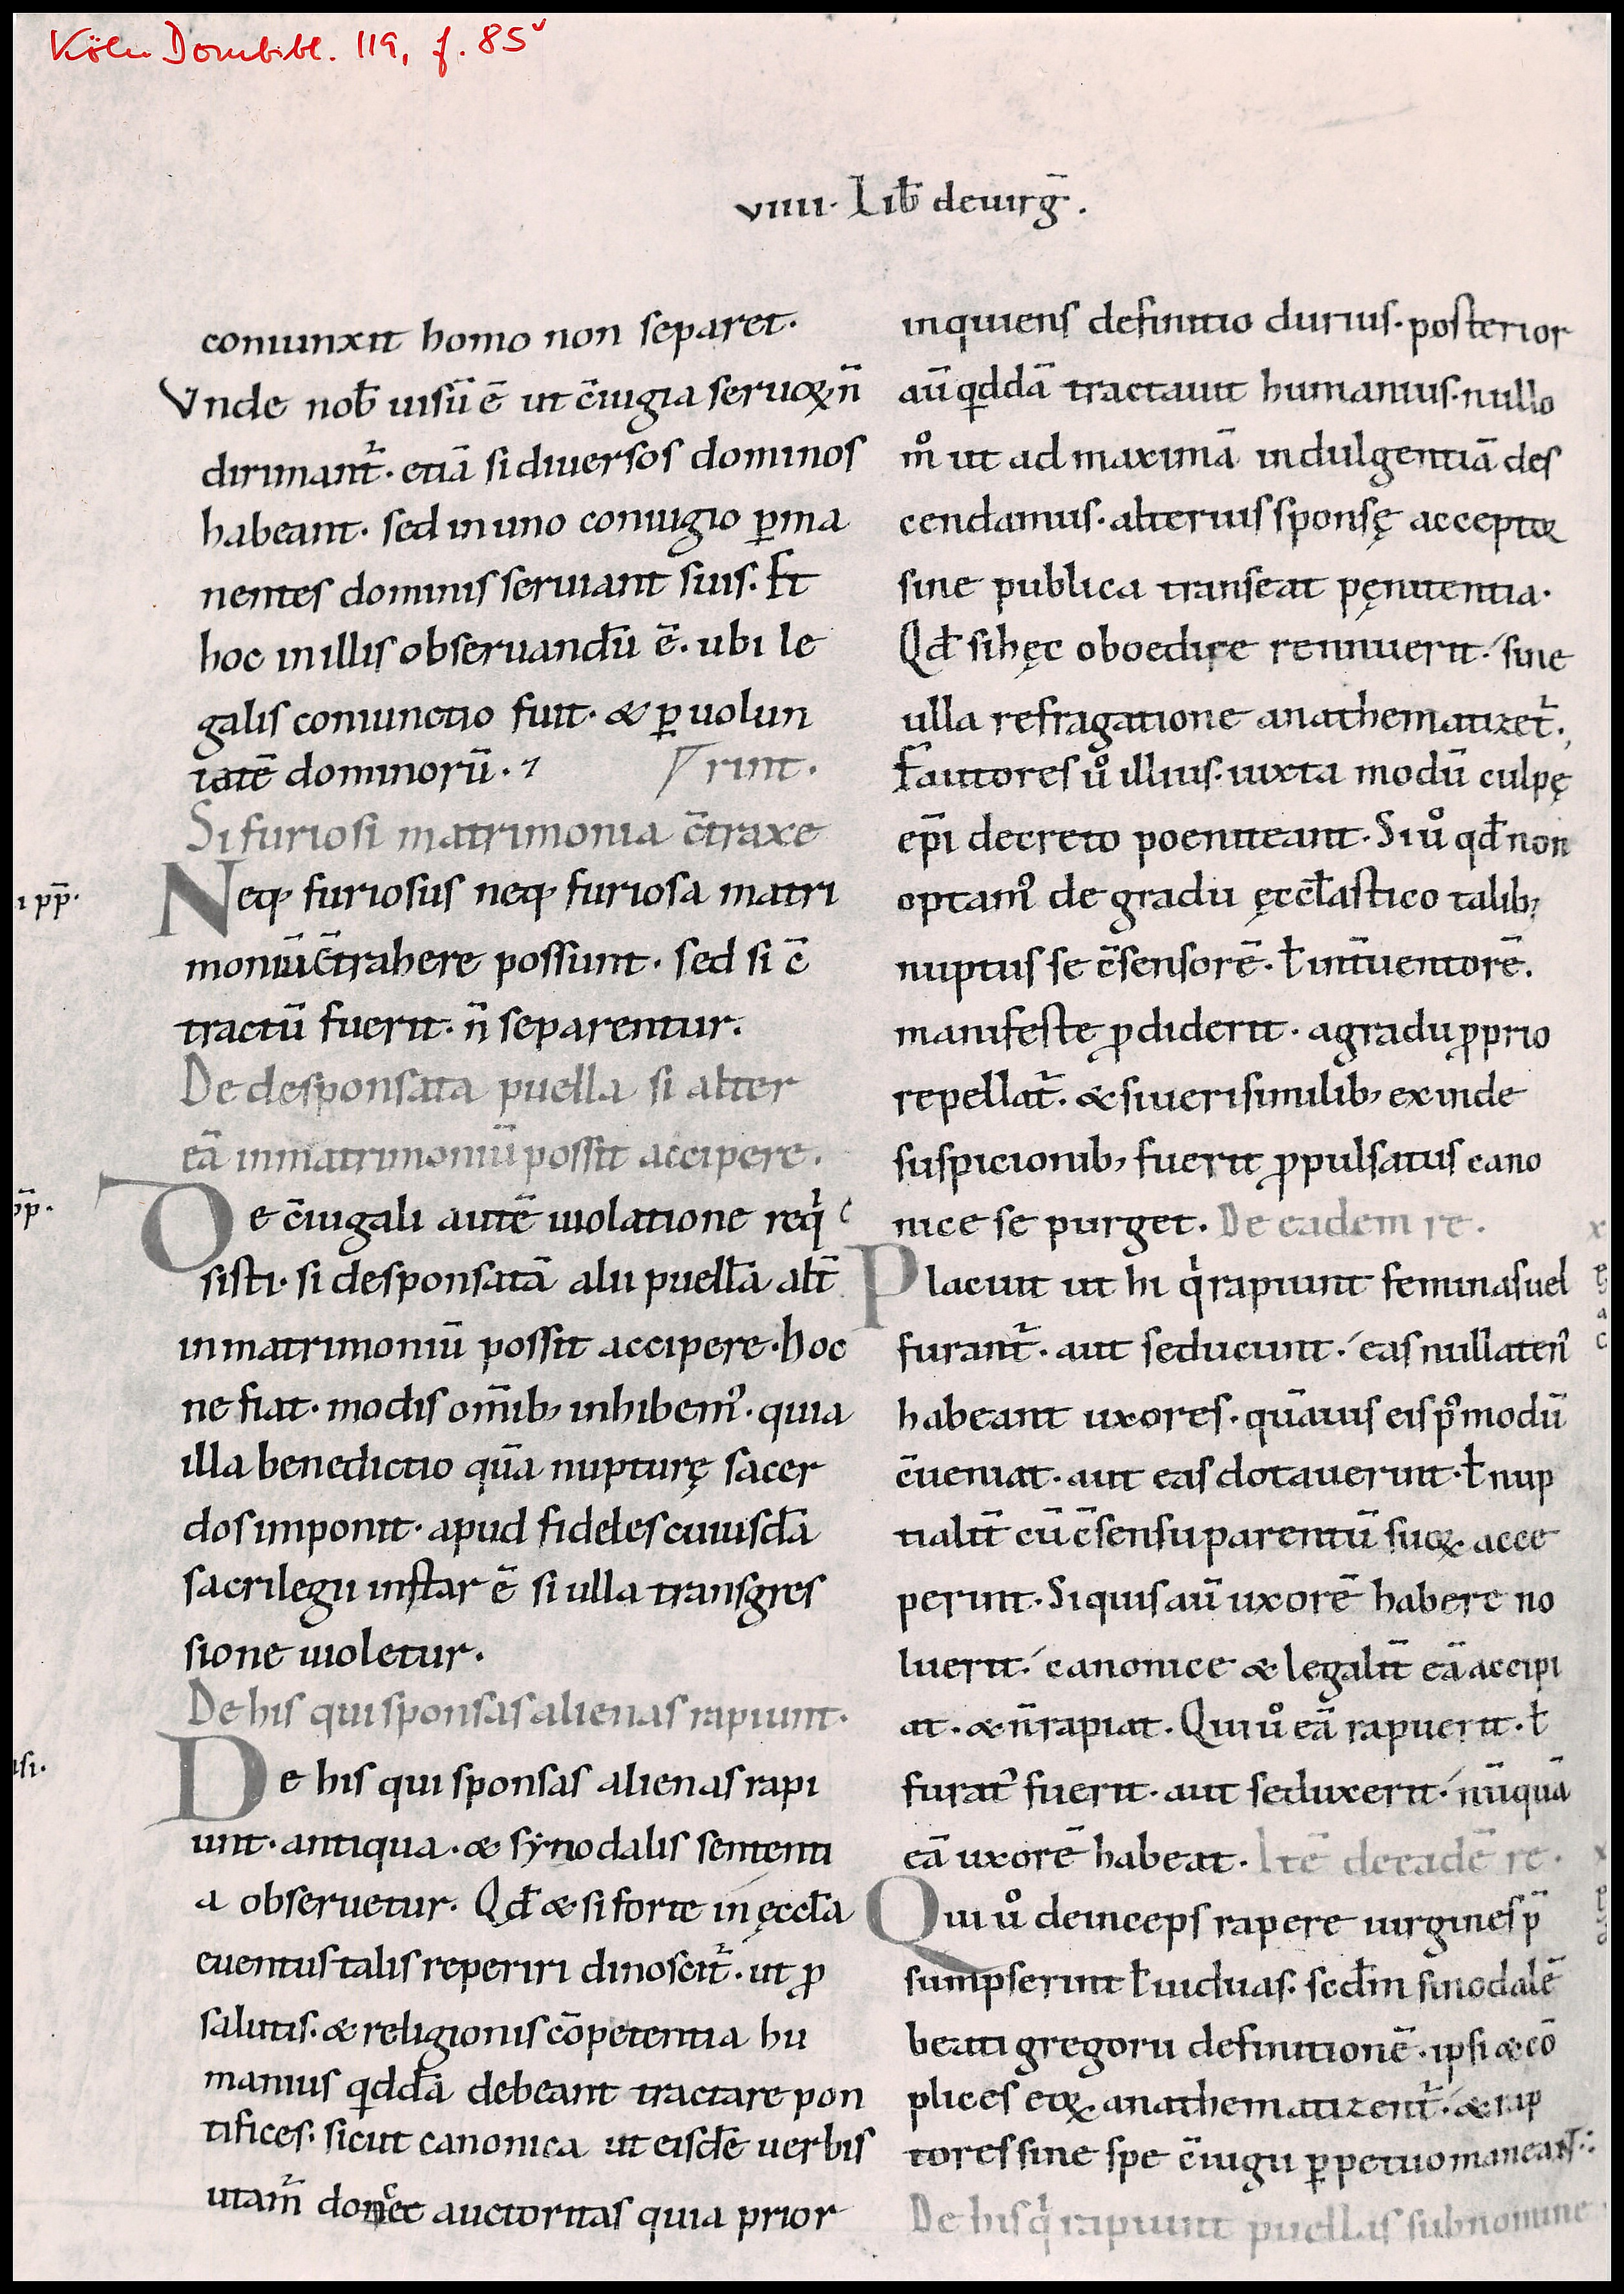 Köln Dombibl. 119, f. 85v
viiii· Lib̅ deuirg̅.
coniunxit homo non separet·
Vnde nob̅ uisū ē ut c̄iugia seruoꝝ n̄
dirimant᷑· etiā si diuersos dominos
habeant· sed in uno coniugio ꝑma
nentes dominis seruiant suis. Et
hoc in illis obseruandū ē· ubi le
galis coniunctio fuit· & ꝑ uolun
tatē dominorū·
rint·
Si furiosi matrimonia c̄traxe
Neq; furiosus neq; furiosa matri
moniū c̄trahere possunt· sed si c̄
tractū fuerit· n̄ separentur.
De desponsata puella si alter
eā in matrimoniū possit accipere.
De c̄iugali autē uiolatione reqⁱ
sisti· si desponsatā alii puellā alt̄
in matrimoniū possit accipere· hoc
ne fiat· modis om̄ib; inhibemꝰ· quia
illa benedictio quā nupturę sacer
dos imponit· apud fideles cuiusdā
sacrilegii instar ē si ulla transgres
sione uioletur.
De his qui sponsas alienas rapiunt·
De his qui sponsas alienas rapi
unt· antiqua· & synodalis sententi
a obseruetur· Qd̄ & si forte in ęccl̄a
euentus talis reperiri dinoscit᷑· ut ꝓ
salutis· & religionis cōpetentia hu
manius qdd̄ā debeant tractare pon
tifices· sicut canonica ut eisdē uerbis
utam᷑ docet auctoritas quia prior
inquiens definitio durius· posterior
aū qddā tractauit humanius· nullo
mͦ ut ad maximā indulgentiā des
cendamus· alterius sponsę acceptoꝝ
sine publica transeat pęnitentia·
Qd̄ si hęc oboedire rennuerit· sine
ulla refragatione anathematizet᷑·
Fautores uͦ illius· iuxta modū culpę
ep̄i decreto poeniteant· Si uͦ qd̄ non
optamꝰ de gradu ęccl̄astico talib;
nuptus se c̄sensorē· ł int̄uentorē.
manifeste ꝓdiderit· a gradu ꝓprio
repellat᷑· & si uerisimilib; exinde
suspicionib; fuerit ꝓpulsatus cano
nice se purget· De eadem re·
Placuit ut hi qⁱ rapiunt feminas uel
furant᷑· aut seducunt· eas nullatenꝰ
habeant uxores· quāuis eis pꝰmodū
c̄ueniat· aut eas dotauerint· ł nup
tialit̄ cū c̄sensu parentū suoꝝ acce
perint· Si quis aū uxorē habere uo
luerit· canonice & legalit̄ eā accipi
at· & n̄ rapiat· Qui uͦ eā rapuerit· ł
furatꝰ fuerit· aut seduxerit· nūquā
eā uxorē habeat· Itē de eadē re·
Qui uͦ deinceps rapere uirgines p̄
sumpserint ł uiduas· sedm̄ sinodalē
beati gregorii definitionē· ipsi & cō
plices eoꝝ anathematizent᷑· & rap
tores sine spe c̄iugii ꝑpetuo maneant
De his qⁱ rapiunt puellas sub nomine